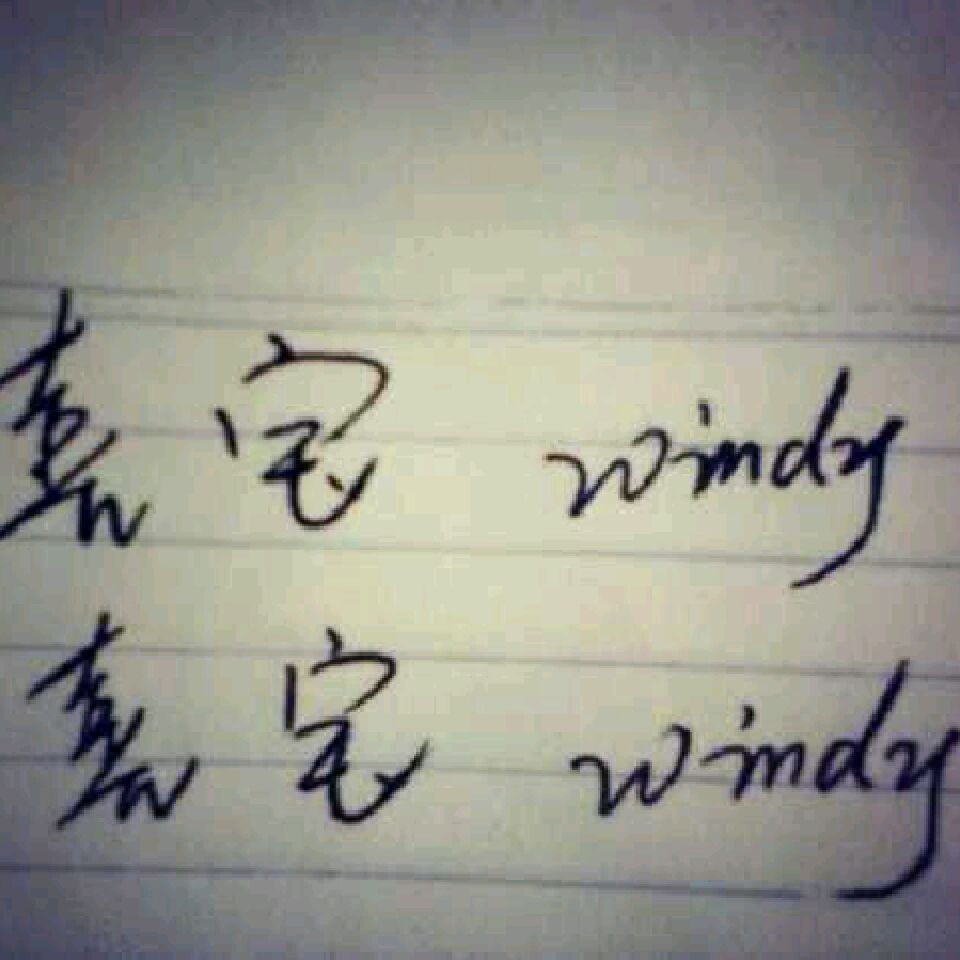 嘉宝 windy
嘉宝 windy